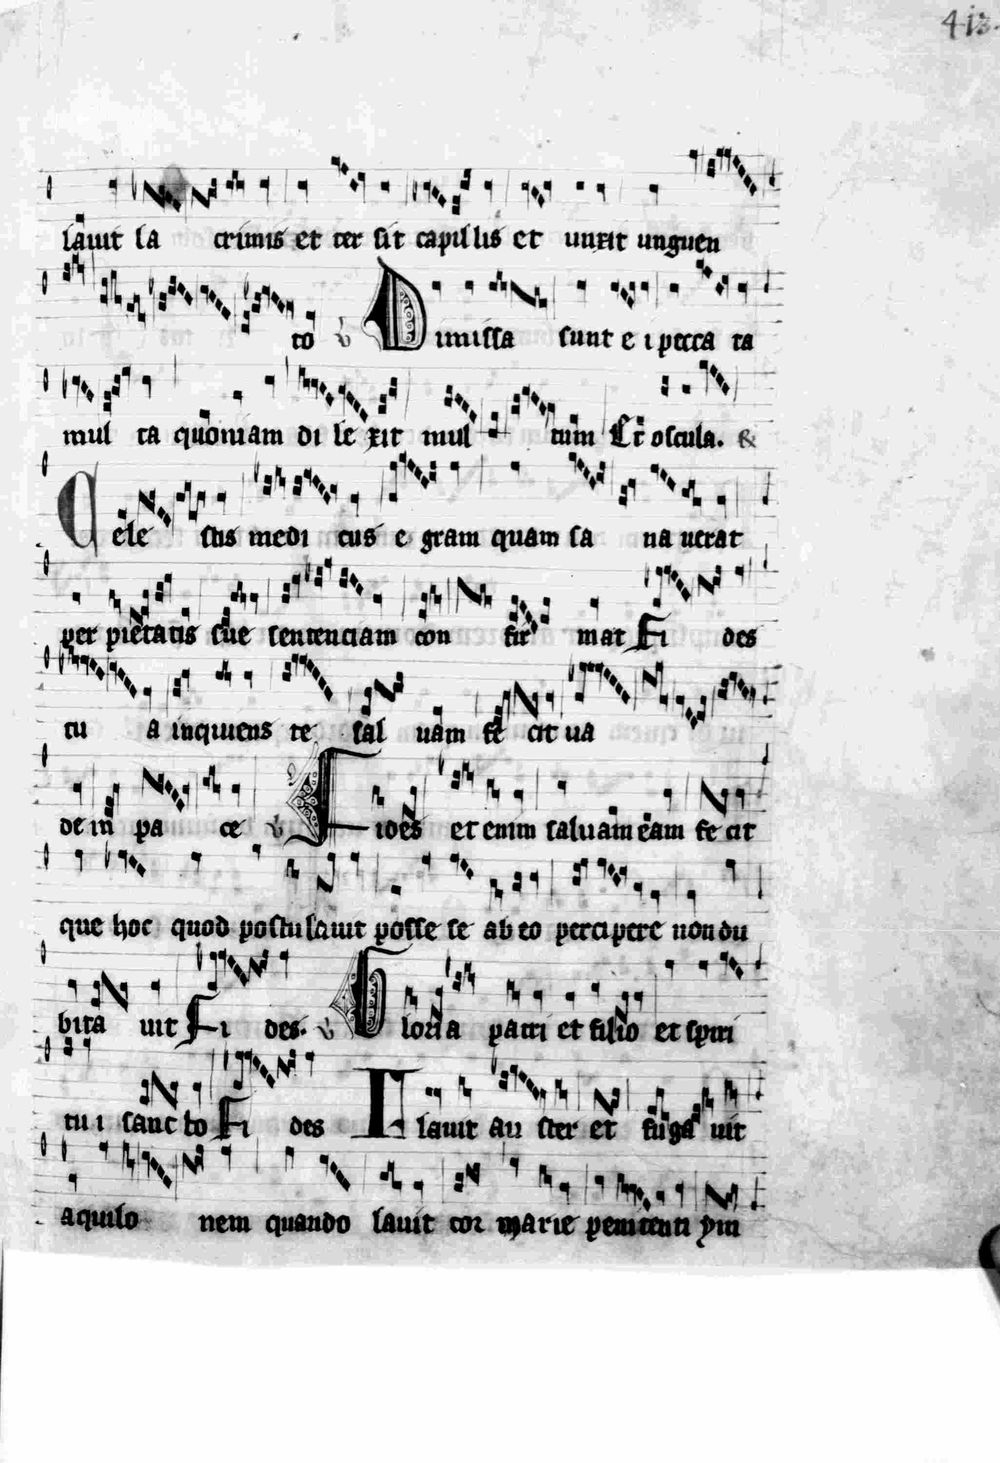 413.
lauit la crimis et ter sit capillis et unxit unguen
to v Dimissa sunt e i pecca ta
mul ta quoniam di le xit mul tum Et oscula. &
Cele stis medi cus e gram quam sa na uerat
per pietatis sue sentenciam con fir mat Fi des
tu a inquiens te sal uam fe cit ua
de in pa ce v Fides et enim saluam eam fe cit
que hoc quod postulauit posse se ab eo percipere non du
bita uit Fi des. v Gloria patri et filio et spiri
tu i sanc to Fi des Flauit au ster et fuga uit
aquilo nem quando lauit cor marie penitenti ym